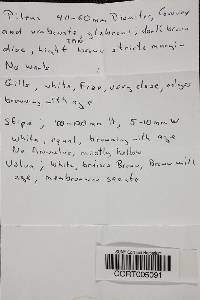 Pileus 40-60mm Diameter, Convex
and umbonate, glabrous, dark brown
disc, and light brown striate margin
No warts
Gills, white, Free, very close, edges
browning with age
Stipe, 100-120mm lt, 5-10mm w
white, equal, browning with age
No Annulus, mostly hollow
Volva, white, bruises Brown, Brown with
age, membranous saccate
CORT006091